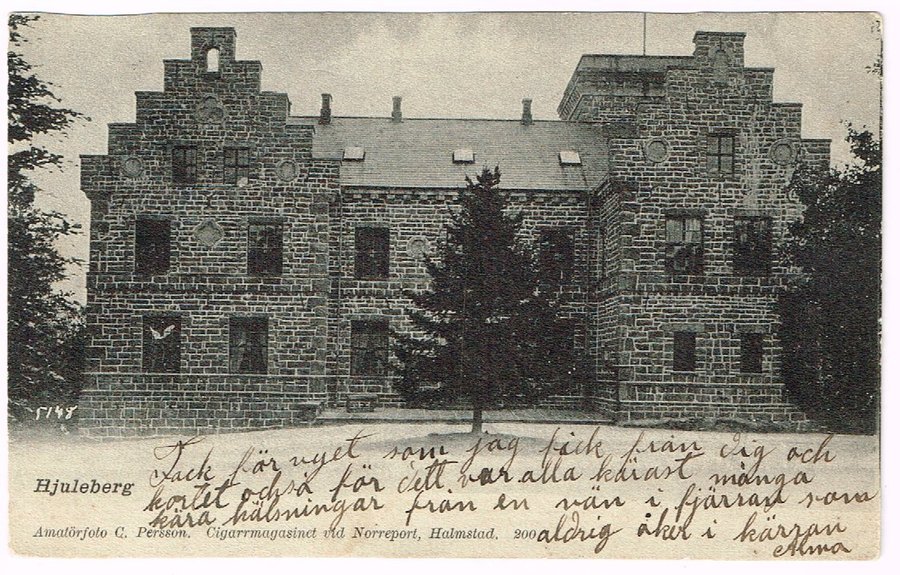 5148
Hjuleberg
Tack för vyet som jag fick från Dig och
kortet också för dett var alla kärast många
kära hälsningar från en vän i fjärran som
aldrig åker i kärran
Alma
Amatörfoto C. Persson. Cigarrmagasinet vid Norreport, Halmstad. 200